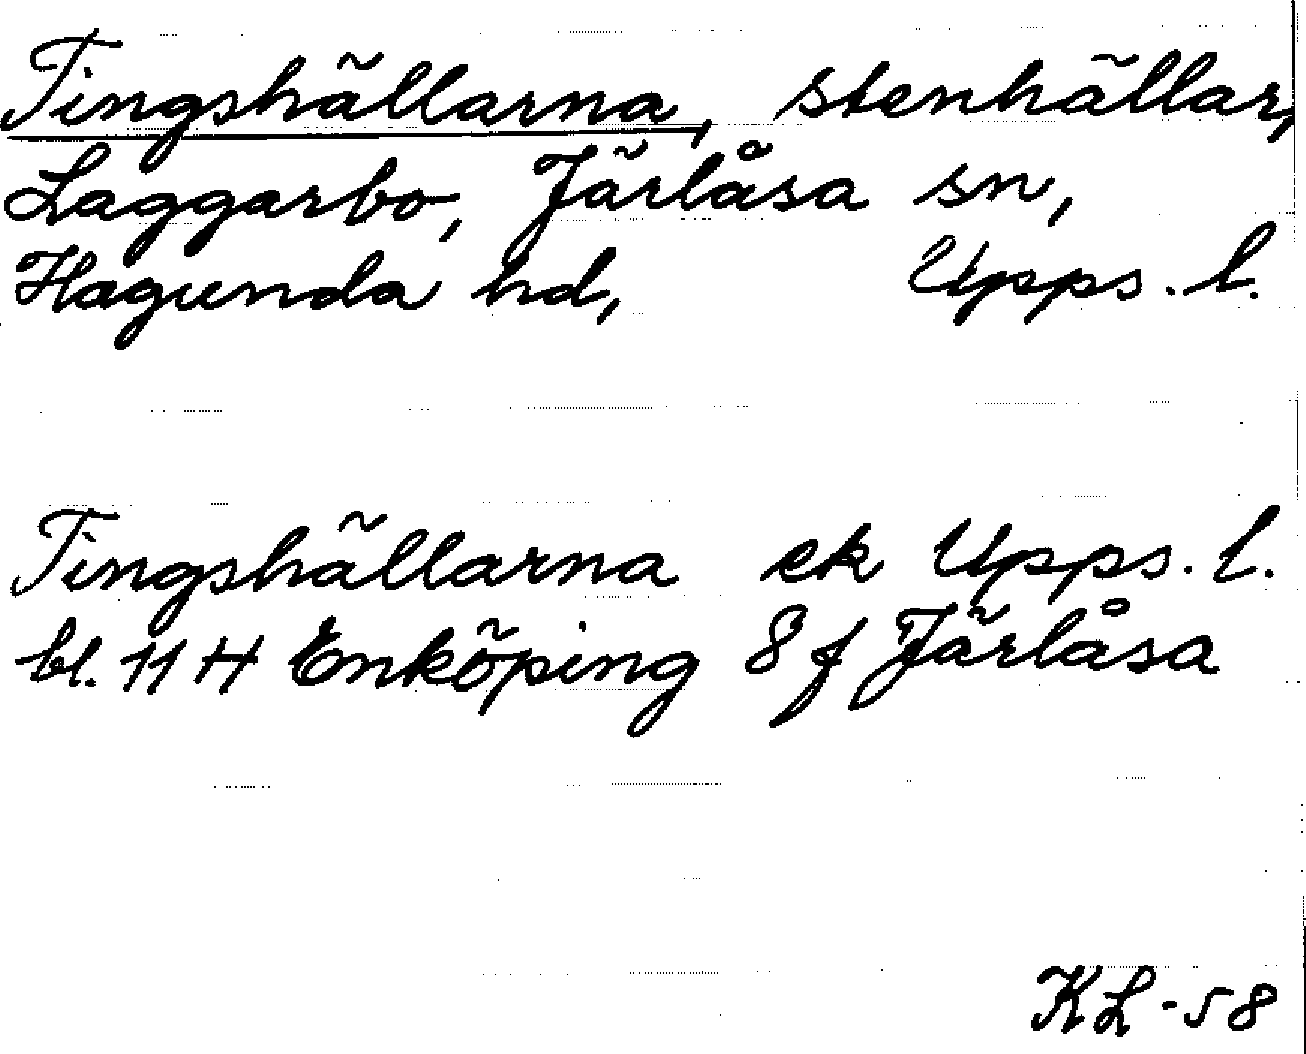 Tingshällarna, stenhällar,
Laggarbo, Järlåsa sn,
Hagunda hd, Upps. l.
Tingshällarna ek Upps. l.
bl. 11 H Enköping 8 f Järlåsa
KL-58